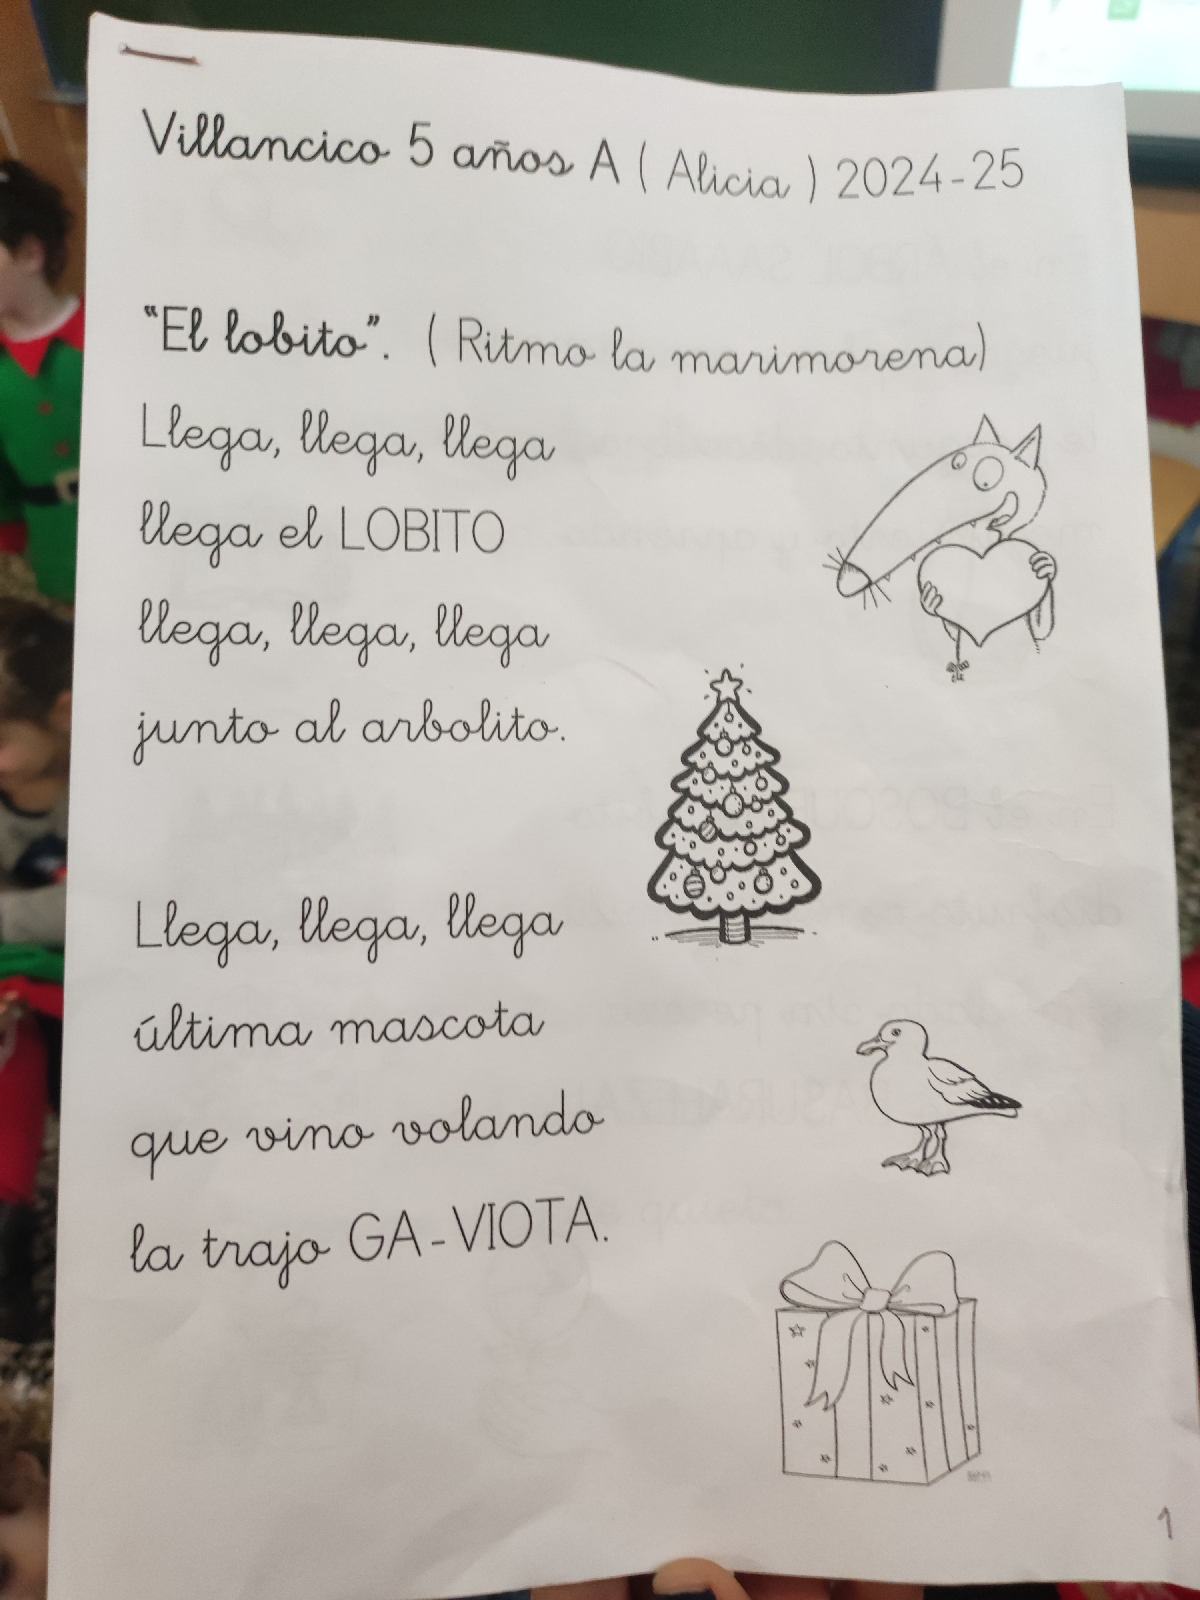 Villancico 5 años A ( Alicia ) 2024-25
“El lobito”. ( Ritmo la marimorena)
Llega, llega, llega
llega el LOBITO
llega, llega, llega
junto al arbolito.
Llega, llega, llega
última mascota
que vino volando
la trajo GA-VIOTA.
1